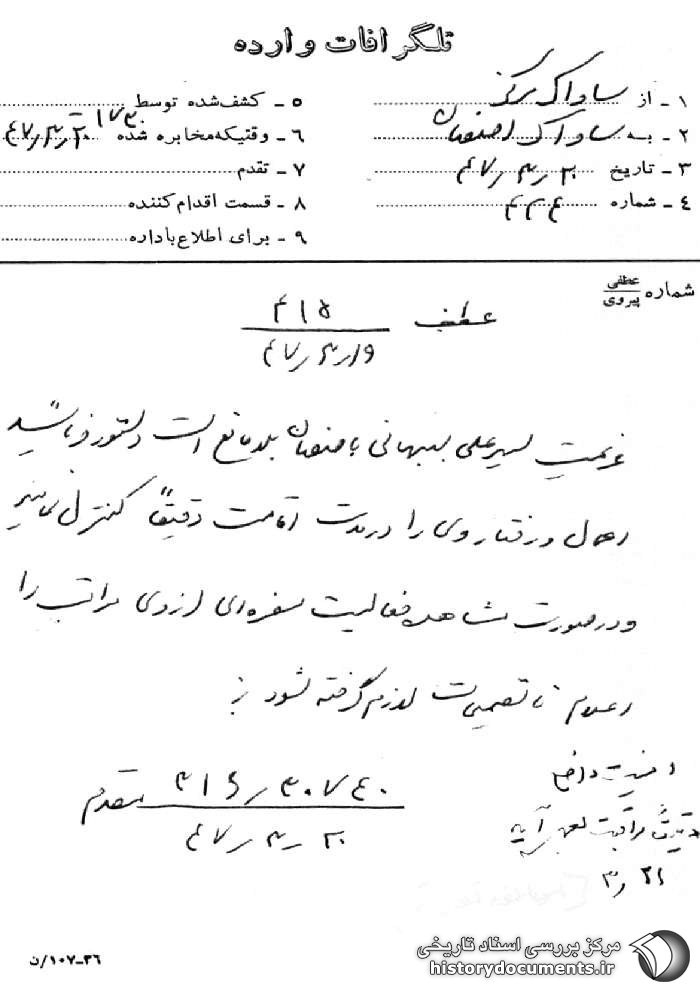 تلگرافات وارده
۱ - از ساواک مرکز
۲ - به ساواک اصفهان
۳ - تاریخ ۲۰ر۳ر۴۷
۴ - شماره
۵ - کشف‌شده توسط
۶ - وقتیکه‌مخابره شده ۱۷۳۰ - ۲۰ر۳ر۴۷
۷ - تقدم
۸ - قسمت اقدام‌کننده
۹ - برای اطلاع‌باداره
شماره عطفی
پیروی
عطف ۴۱۵
۱۹ر۳ر۴۷
عزیمت سیدعلی بهبهانی باصفهان بلامانع است دستور فرمائید
اعمال و رفتار وی را در مدت اقامت دقیقاً کنترل نمایند
و در صورت مشاهده فعالیت مضره‌ای از وی مراتب را
اعلام تا تصمیمات لازم گرفته شود
مقدم
۲۰ر۳ر۴۷
امنیت داخلی
دقیقاً مراقبت بعمل آید
۲۱ر۳
۳۶-۱۰۷/ن
مرکز بررسی اسناد تاریخی
historydocuments.ir